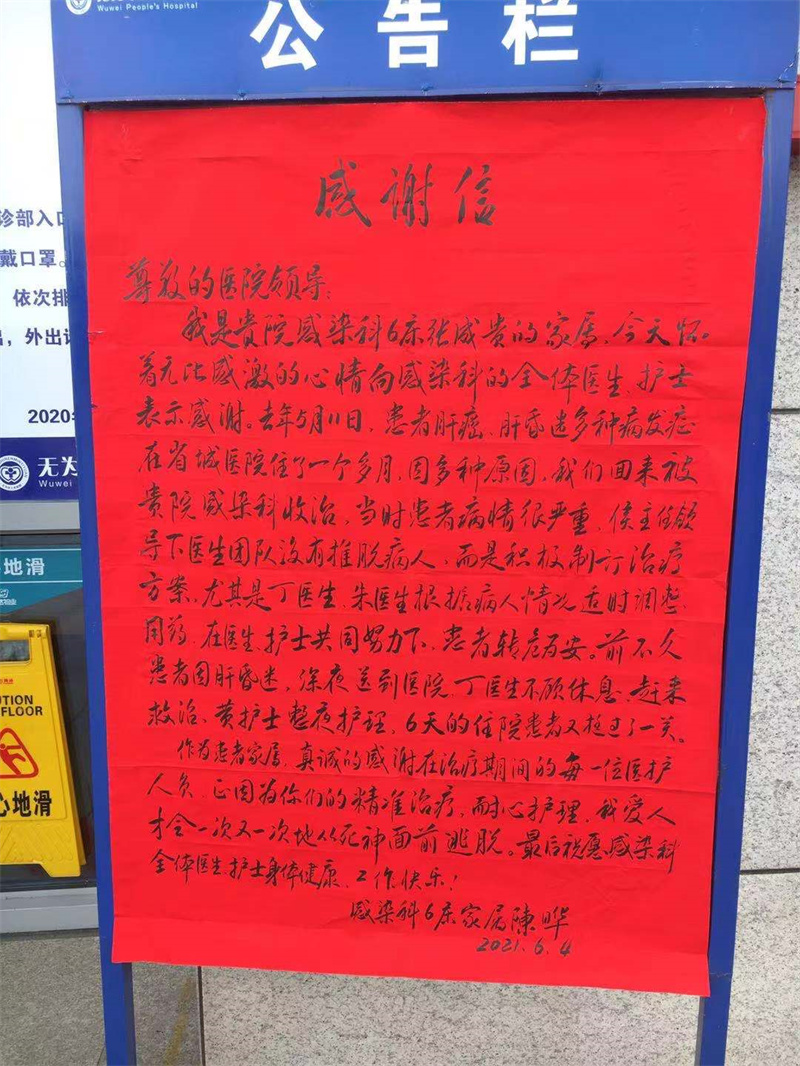 Wuwei People's Hospital
公告栏
诊部入口
戴口罩。
依次排
出，外出
2020
无为
Wuwei
地滑
UTION
FLOOR
心地滑
感谢信
尊敬的医院领导：
我是贵院感染科6床张成贵的家属，今天怀
着无比感激的心情向感染科的全体医生、护士
表示感谢。去年5月11日，患者肝癌、肝昏迷多种病发症
在省城医院住了一个多月，因多种原因，我们回来被
贵院感染科收治，当时患者病情很严重，侯主任领
导下医生团队没有推脱病人，而是积极制订治疗
方案，尤其是丁医生、朱医生根据病人情况适时调整
用药，在医生、护士共同努力下，患者转危为安。前不久
患者因肝昏迷，深夜送到医院，丁医生不顾休息，赶来
救治、黄护士整夜护理，6天的住院患者又挺过了一关。
作为患者家属，真诚的感谢在治疗期间的每一位医护
人员，正因为你们的精准治疗，耐心护理，我爱人
才会一次又一次地从死神面前逃脱。最后祝愿感染科
全体医生、护士身体健康，工作快乐！
感染科6床家属陳晔
2021.6.4